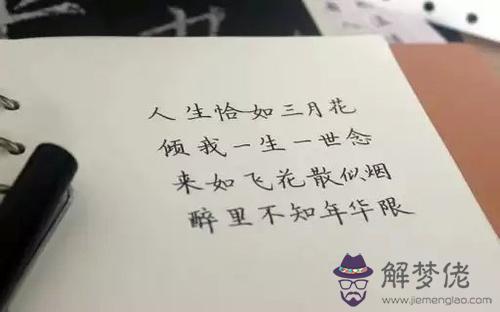 人生恰如三月花
倾我一生一世念
来如飞花散似烟
醉里不知年华限
解梦佬
www.jiemenglao.com